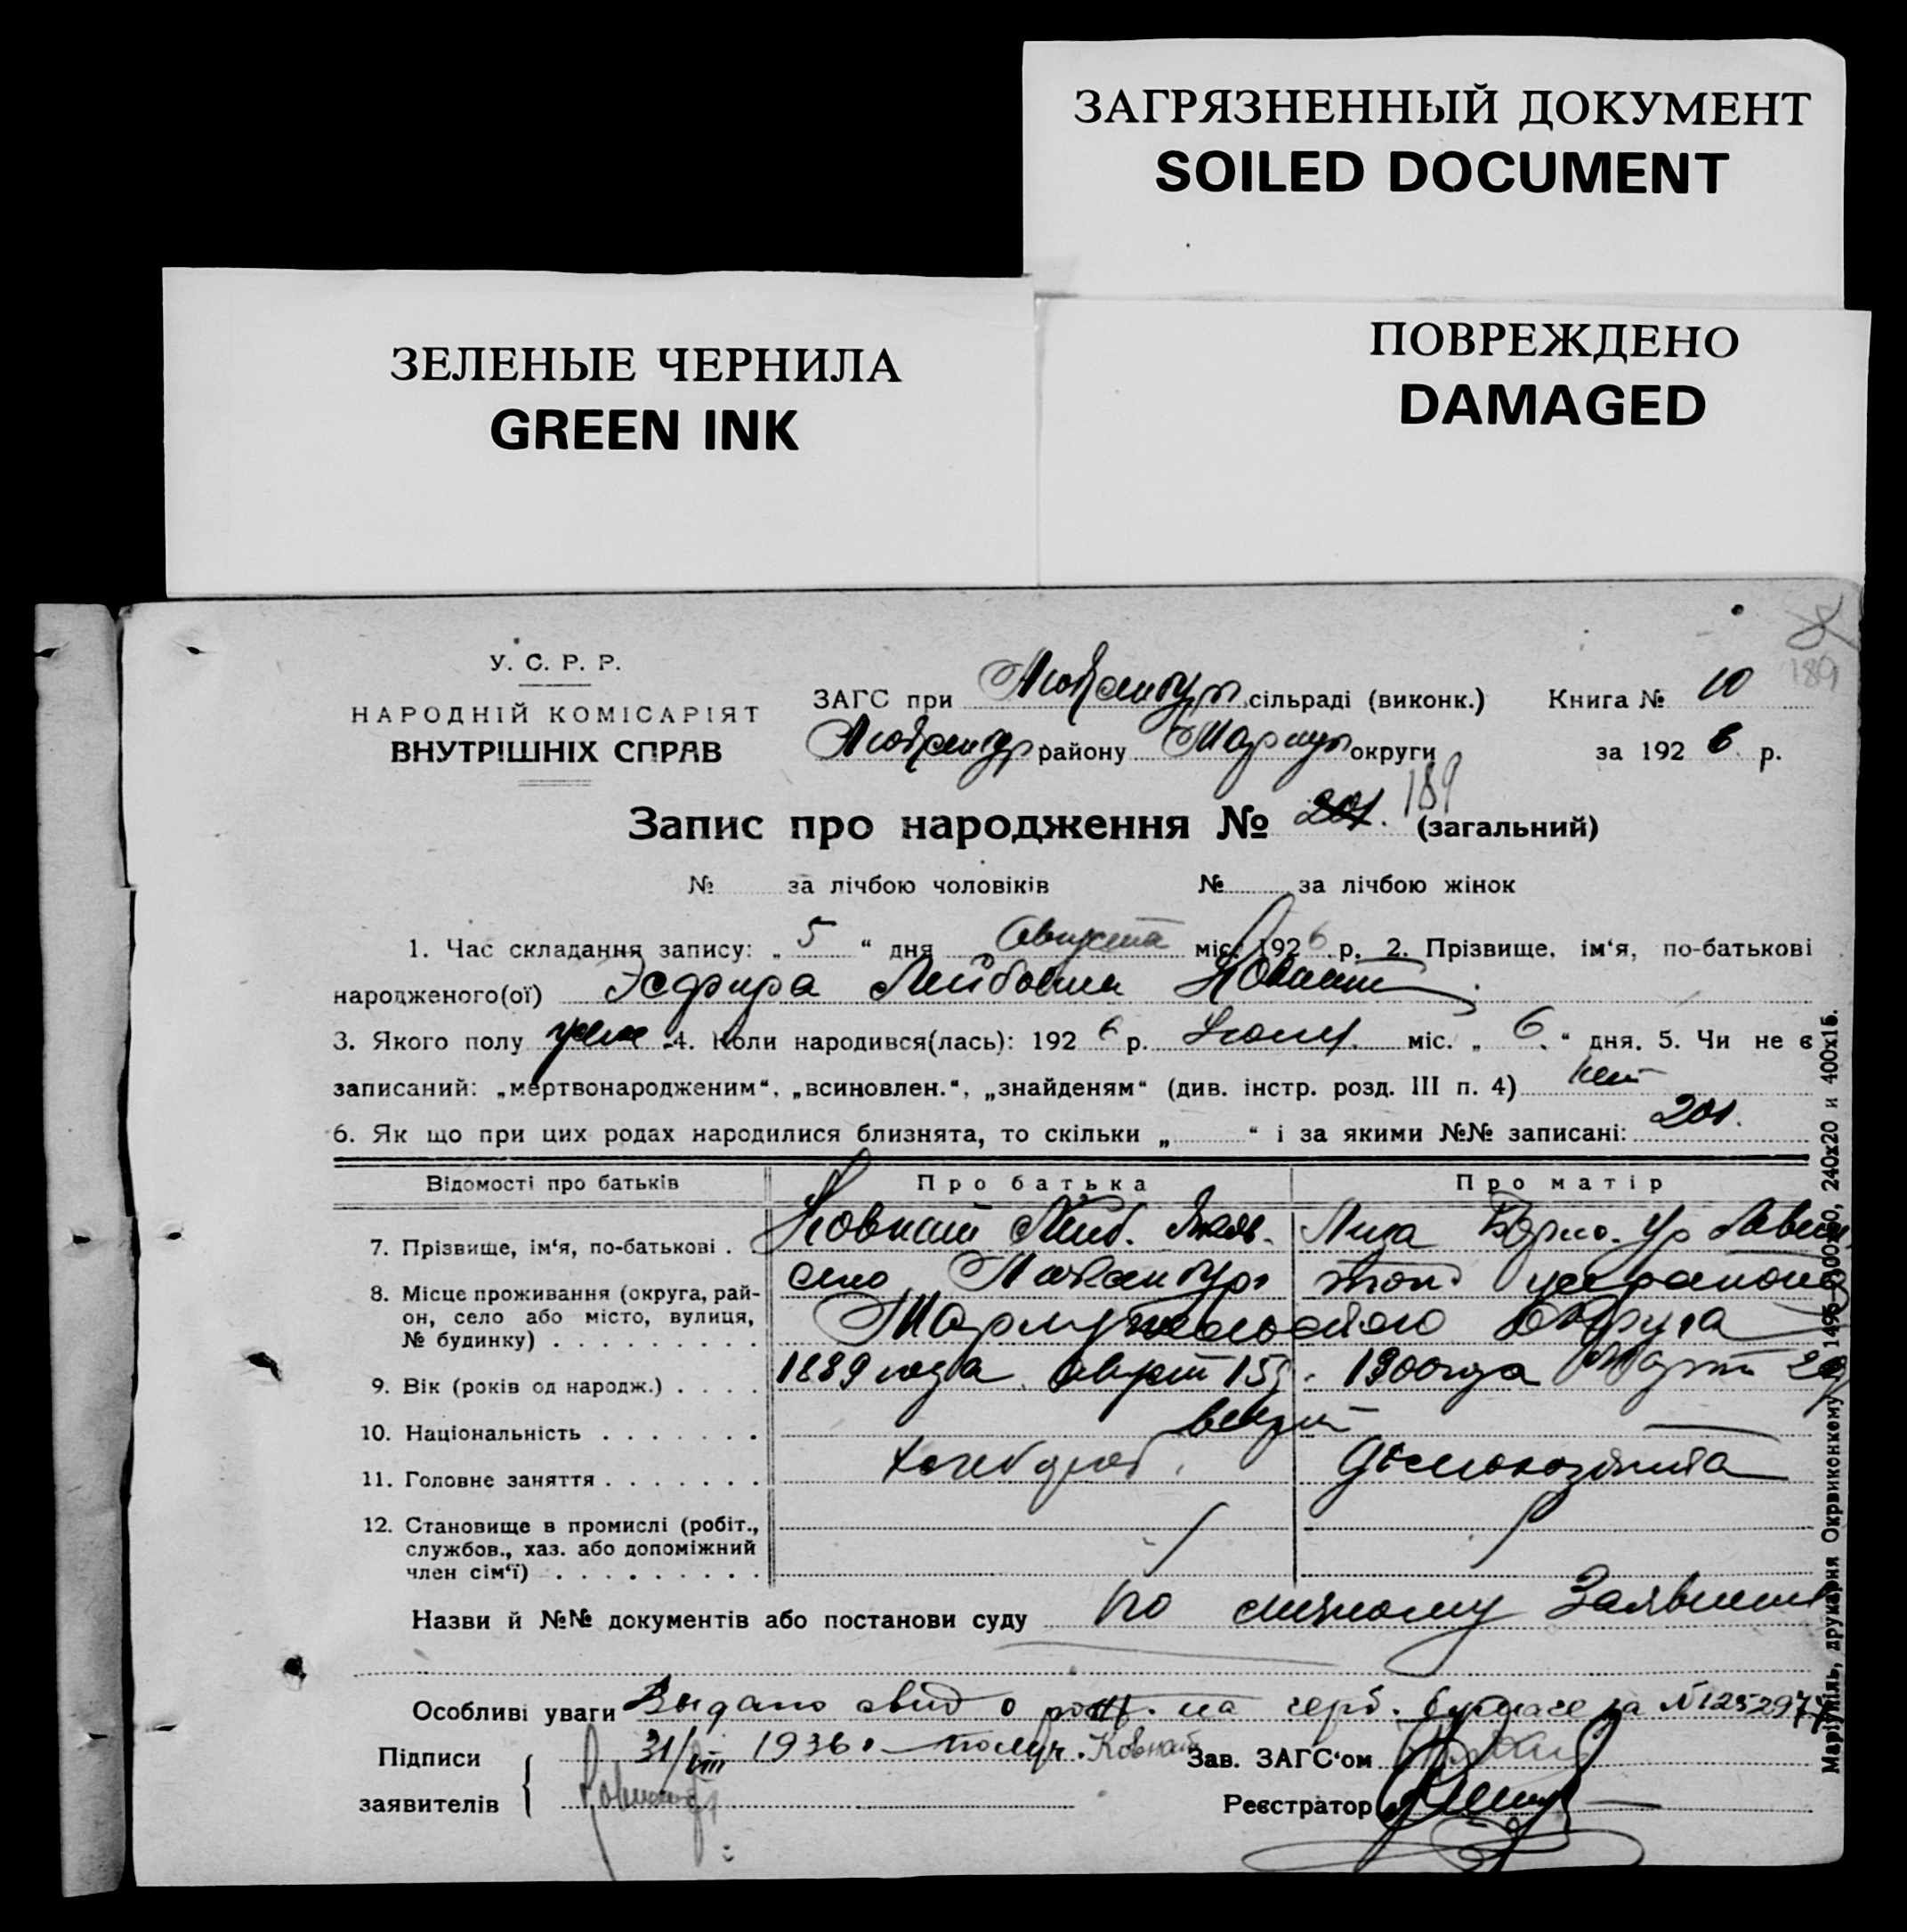 ЗАГРЯЗНЕННЫЙ ДОКУМЕНТ
SOILED DOCUMENT
ЗЕЛЕНЫЕ ЧЕРНИЛА
GREEN INK
ПОВРЕЖДЕНО
DAMAGED
189
У. С. Р. Р.
НАРОДНІЙ КОМІСАРІЯТ
ВНУТРІШНІХ СПРАВ
ЗАГС при сільраді (виконк.) Книга № 10
району Мариуп округи за 1926 р.
Запис про народження № 201. 189 (загальний)
№ за лічбою чоловіків № за лічбою жінок
1. Час складання запису: „ 5 “ дня Августа міс. 1926 р. 2. Прізвище, ім‘я, по-батькові
народженого(ої) Эсфира Лейбовна Ковнат
3. Якого полу жен 4. Коли народився(лась): 1926 р. міс. „ 6. “ дня. 5. Чи не є
записаний: „мертвонародженим“, „всиновлен.“, „знайденям“ (див. інстр. розд. III п. 4) нет
6. Як що при цих родах народилися близнята, то скільки „ “ і за якими №№ записані: 201.
Відомості про батьків Про батька Про матір
7. Прізвище, ім‘я, по-батькові . Ковнат Лейб.
8. Місце проживання (округа, рай-
он, село або місто, вулиця,
№ будинку) . . . . . . . . . село
Мариупольского Округа
9. Вік (років од народж.) . . . . 1889 года август 15 1900 года Март
10. Національність . . . . . . .
11. Головне заняття . . . . . . . хлебороб. домохозяйка
12. Становище в промислі (робіт.,
службов., хаз. або допоміжний
член сім‘ї) . . . . . . . . .
Назви й №№ документів або постанови суду по личному Заявлению
Особливі уваги Выдано свид о рожд. на герб. бумаге за № 1252977
Підписи 31/VIII 1936 г. получ. Ковнат Зав. ЗАГС‘ом
заявителів Реєстратор
Маріупіль, друкарня Окрвиконкому 1495—300х80, 240х20 и 400х15.